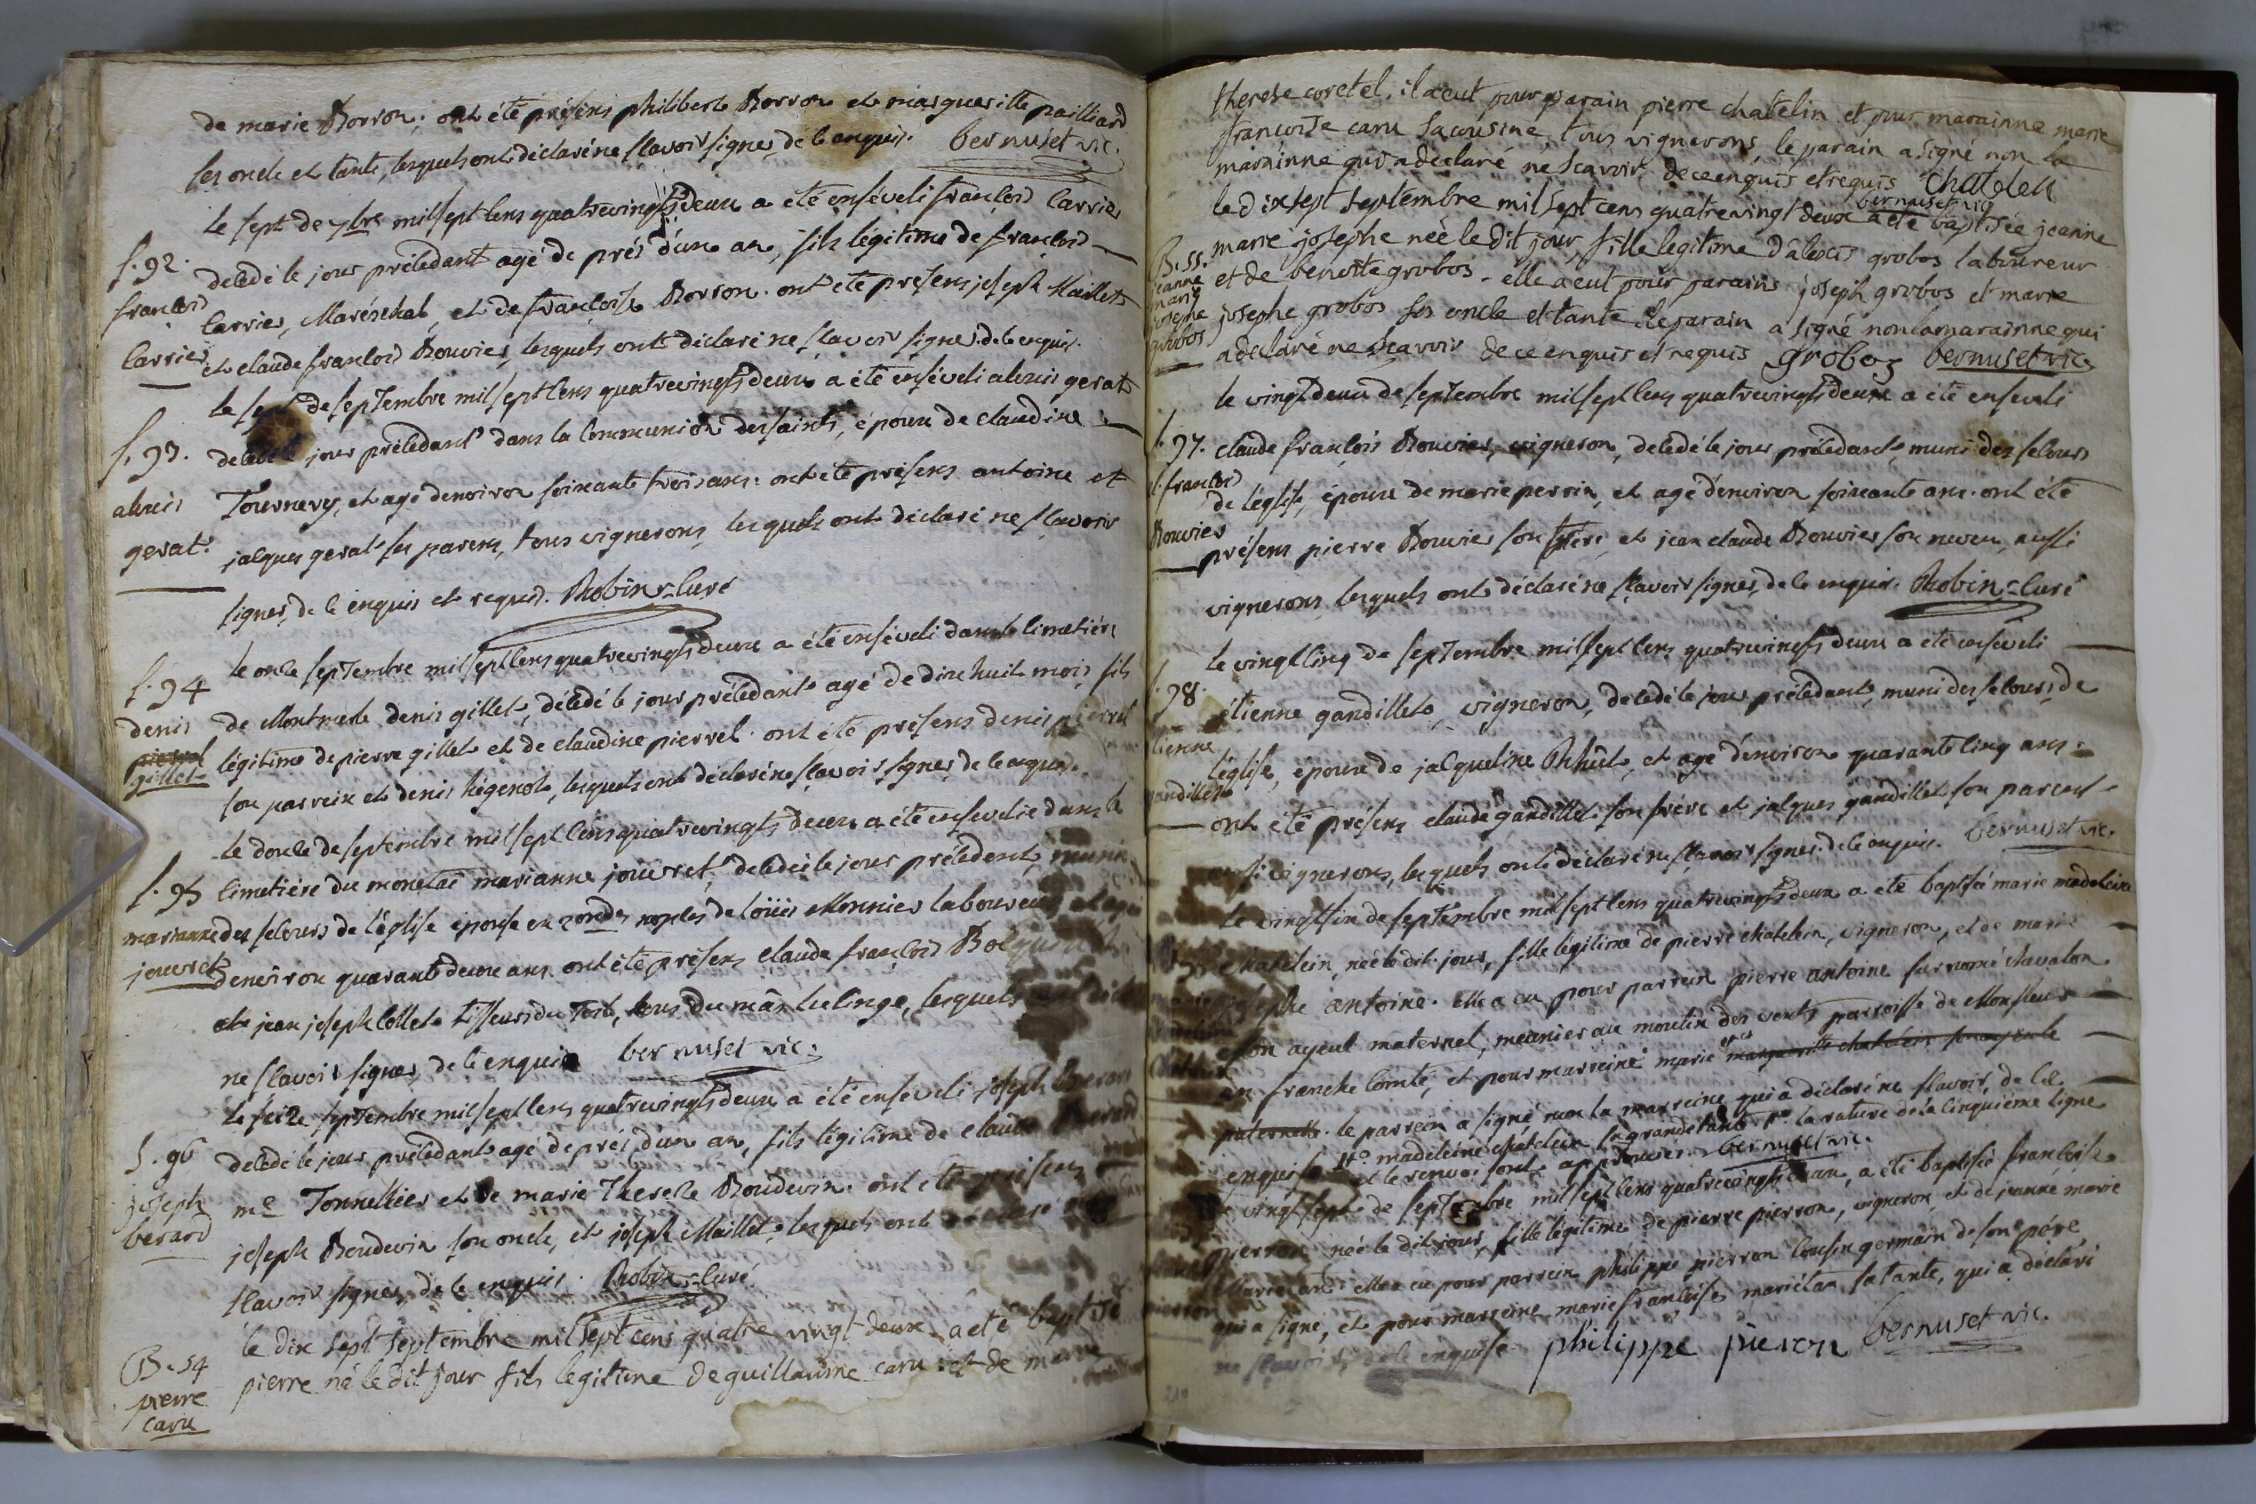 de marie Borron; ont été présens philibert Borron et marguerite pailliard
ses oncle et tante, lesquels ont déclaré ne sçavoir signer, de ce enquis. bernuset vic.
le sept de 7bre mil sept cens quatrevingts deux a été enséveli françois Carrier
S. 92.
françois
Carrier
décédé le jour précédant agé de près d'un an, fils légitime de françois
Carrier, Maréschal, et de françoise Borron. ont été présens joseph Maillet
et claude françois Bouvier, lesquels ont déclaré ne sçavoir signer de ce enquis.
le sept de septembre mil sept cens quatrevingts deux a été enséveli alexis gerat
S. 93.
alexis
gerat.
décédé le jour précédant dans la Communion des saints, époux de claudine
Tournery, et agé d'environ soixante trois ans: ont été présens antoine et
jacques gerat ses parens, tous vignerons, lesquels ont déclaré ne sçavoir
signer, de ce enquis et requis. Robin-Curé
le onze septembre mil sept cens quatrevingts deux a été enséveli dans le cimetière
S. 94
denis
gillet
de Montmerle denis gillet, décédé le jour précédant agé de dix huit mois, fils
légitime de pierre gillet et de claudine pierrel. ont été présens denis pierrel
son parrein et denis hégenot, lesquels ont déclaré ne sçavoir signer de ce enquis.
le douze de septembre mil sept cens quatrevingts deux a été ensevelie dans le
S. 95
marianne
jouvret
cimetière du monetai marianne jouvret, décédée le jour précédent, munie
des secours de l'église épouse en 2ondes noces de loüis Monnier laboureur, et agée
d'environ quarante deux ans. ont été présens claude françois
et jean joseph Collet tisseur du Tort, lesquels
ne sçavoir signer, de ce enquis bernuset vic.
le seize septembre mil sept cens quatrevingts deux a été enséveli joseph berard
S. 96
joseph
berard
décédé le jour précédant agé de près d'un an, fils légitime de claude berard
me Tonnellier et de marie Therese Boudevin. ont été présens
joseph Boudevin son oncle, et joseph Maillet, lesquels ont déclaré
sçavoir signer, de ce enquis. Robin-Curé
le dix sept septembre mil sept cens quatre vingt deux a eté baptisé
B. 54
pierre
caru
pierre né le dit jour fils legitime de guillaume caru et de marie
therese coretel. il a eut pour parain pierre chatelin et pour marainne marie
francoise caru sa cousine tous vignerons, le parain a signé non la
marainne qui a declaré ne scavoir, de ce enquis et requis Chatelen
bernuset vic
le dix sept septembre mil sept cens quatre vingt deux a été baptisée jeanne
B. 55.
jeanne
marie
josephe
grobos
marie josephe née le dit jour, fille legitime d'alexis grobos laboureur
et de benoite grobos. elle a eut pour parains joseph grobos et marie
josephe grobos ses oncle et tante le parain a signé non la marainne qui
a declaré ne scavoir de ce enquis et requis grobos bernuset vic.
le vingt deux de septembre mil sept cens quatrevingts deux a été enseveli
S. 97.
C. françois
Bouvier
claude françois Bouvier, vigneron, décédé le jour précédant, muni des secours
de l'église, époux de marie perrin, et agé d'environ soixante ans. ont été
présens pierre Bouvier son frère, et jean claude Bouvier son neveu, aussi
vignerons, lesquels ont déclaré ne sçavoir signer, de ce enquis. Robin-Curé
le vingt cinq de septembre mil sept cens quatrevingts deux a été enséveli
98.
étienne
gandillet
étienne gandillet, vigneron, décédé le jour précédant, muni des secours de
l'église, époux de jacqueline, et agé d'environ quarante cinq ans.
ont été présens claude gandillet son frère et jacques gandillet son parent
aussi vignerons, lesquels ont déclaré ne sçavoir signer. de ce enquis. bernuset vic.
le vingt six de septembre mil sept cens quatrevingts deux a été baptisée marie madeleine
chatelein, née le dit jour, fille légitime de pierre chatelein, vigneron, et de marie
josephe antoine. elle a eu pour parrein pierre antoine surnomé chavalon
son ayeul maternel, meunier au moulin des vents parroisse de Monfleur
en franche Comté, et pour marreine marie
le parrein a signé non la marreine qui a déclaré ne sçavoir, de ce
enquise madeleine chatelein sa grande tante la rature de la cinquième ligne
et le renvoi sont approuvés. bernuset vic.
le vingt sept de septembre mil sept cens quatrevingts deux, a été baptisée françoise
pierron
pierron née le dit jour, fille légitime de pierre pierron, vigneron, et de jeanne marie
elle a eu pour parrein philippe pierron cousin germain de son père
qui a signé, et pour marreine marie françoise mariétan sa tante, qui a déclaré
ne sçavoir, de ce enquise philippe pieron bernuset vic.